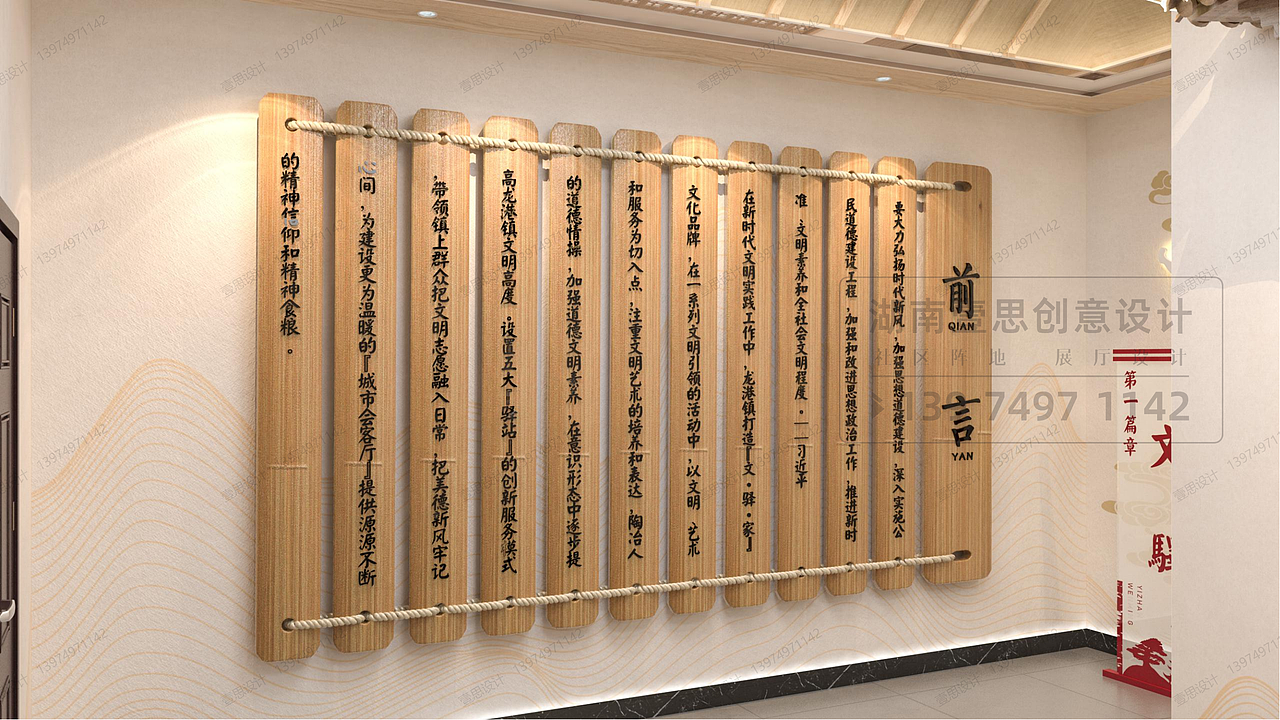 前
QIAN
言
YAN
要大力弘扬时代新风,加强思想道德建设,深入实施公
民道德建设工程,加强和改进思想政治工作,推进新时
在新时代文明实践工作中,龙港镇打造『文·驿·家』
准、文明素养和全社会文明程度。——习近平
文化品牌,在一系列文明引领的活动中,以文明、艺术
和服务为切入点,注重文明艺术的培养和表达,陶冶人
的道德情操,加强道德文明素养,在意识形态中逐步提
高龙港镇文明高度。设置五大『驿站』的创新服务模式
,带领镇上群众把文明志愿融入日常,把美德新风牢记
心间,为建设更为温暖的『城市会客厅』提供源源不断
的精神信仰和精神食粮。
第一篇章
文
驿
YIZHA
WE I G
湖南壹思创意设计
社区阵地 展厅设计
139 7497 1142
壹思设计 13974971142